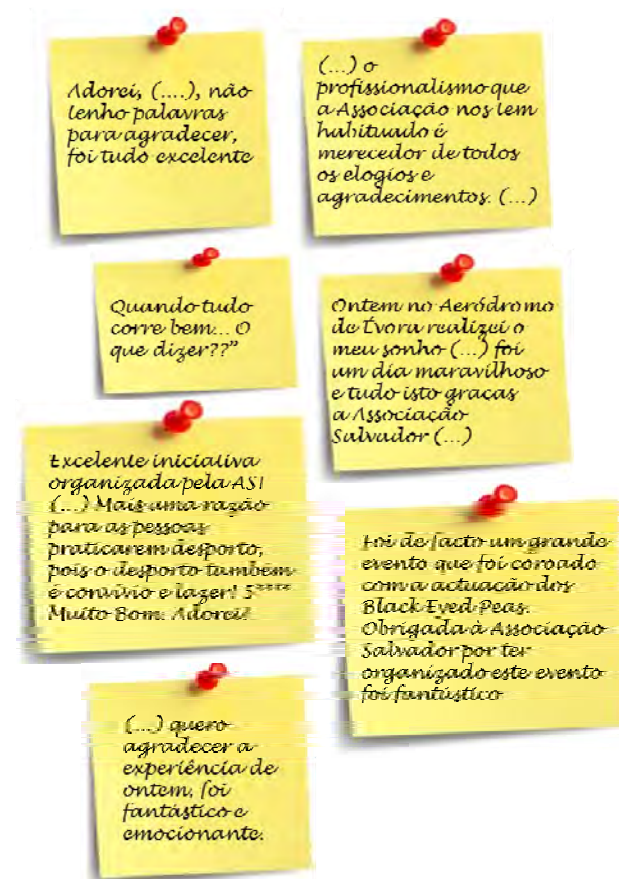 Adorei, (....), não
tenho palavras
para agradecer,
foi tudo excelente
(...) o
profissionalismo que
a Associação nos tem
habituado é
merecedor de todos
os elogios e
agradecimentos. (...)
Quando tudo
corre bem... O
que dizer??”
Ontem no Aeródromo
de Évora realizei o
meu sonho (...) foi
um dia maravilhoso
e tudo isto graças
a Associação
Salvador (...)
Excelente iniciativa
organizada pela AS!
(...) Mais uma razão
para as pessoas
praticarem desporto,
pois o desporto também
é convívio e lazer! 5****
Muito Bom. Adorei!
Foi de facto um grande
evento que foi coroado
com a actuação dos
Black Eyed Peas.
Obrigada à Associação
Salvador por ter
organizado este evento
foi fantástico
(...) quero
agradecer a
experiência de
ontem, foi
fantástico e
emocionante.